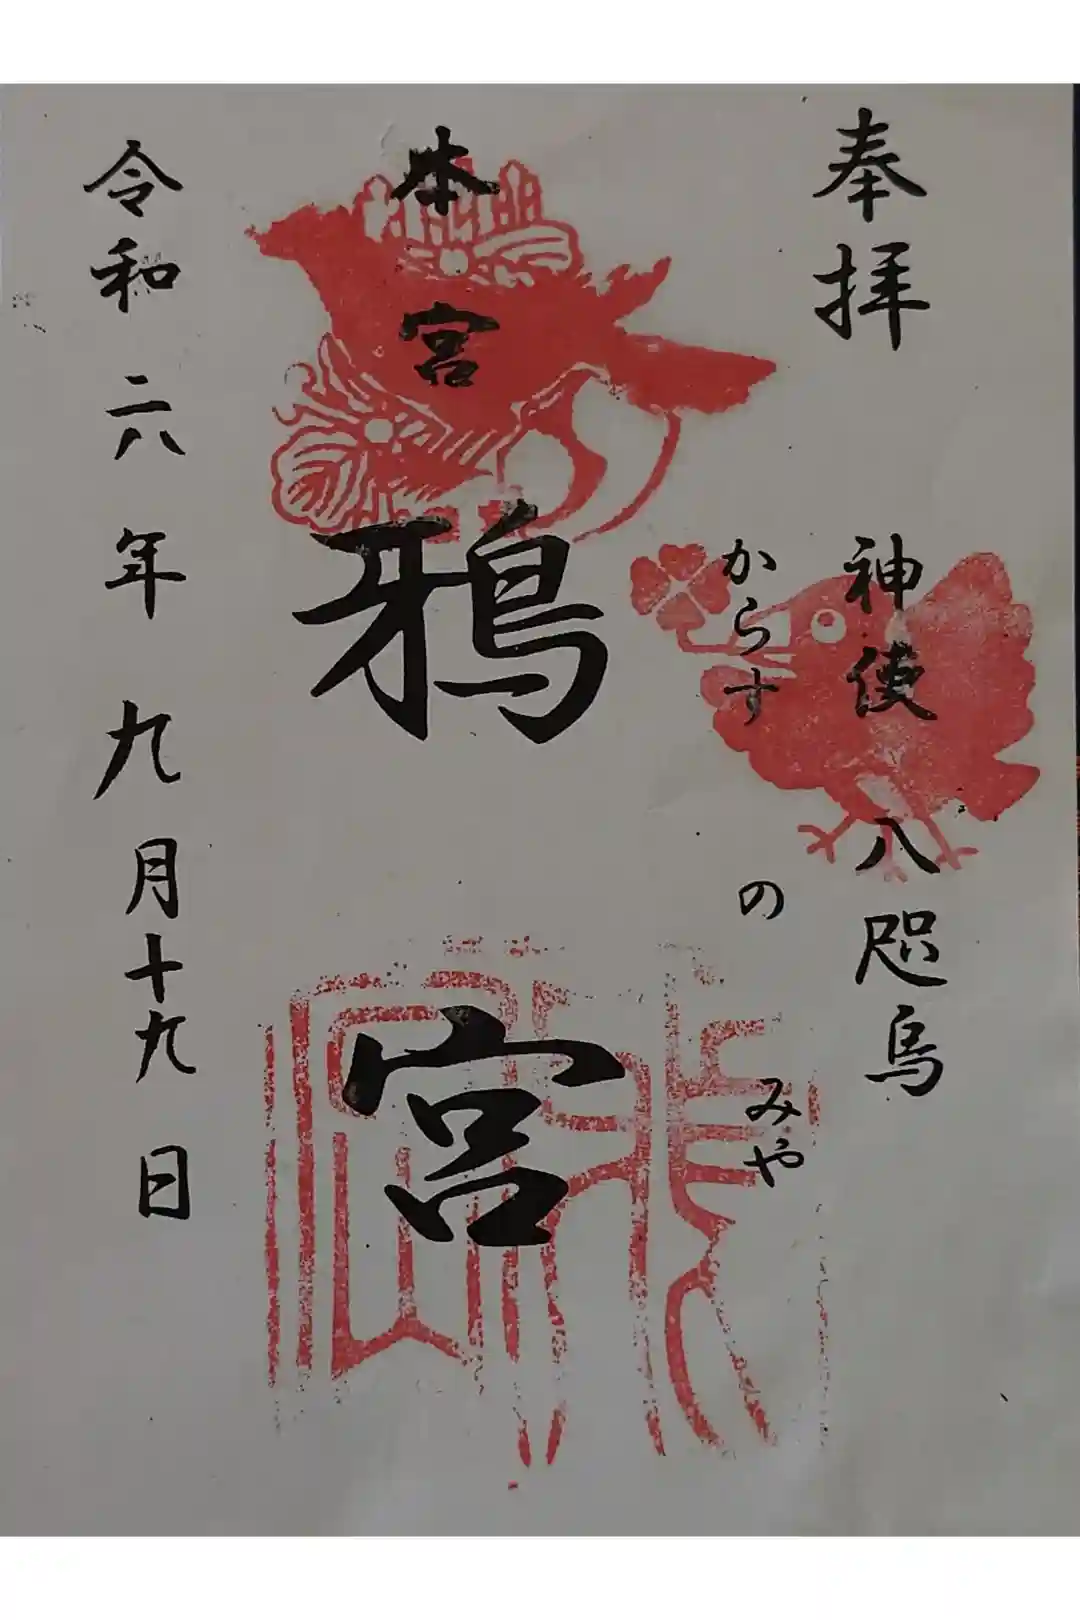 奉拝
神使 八咫烏
からす の みや
本宮
鴉宮
令和六年九月十九日